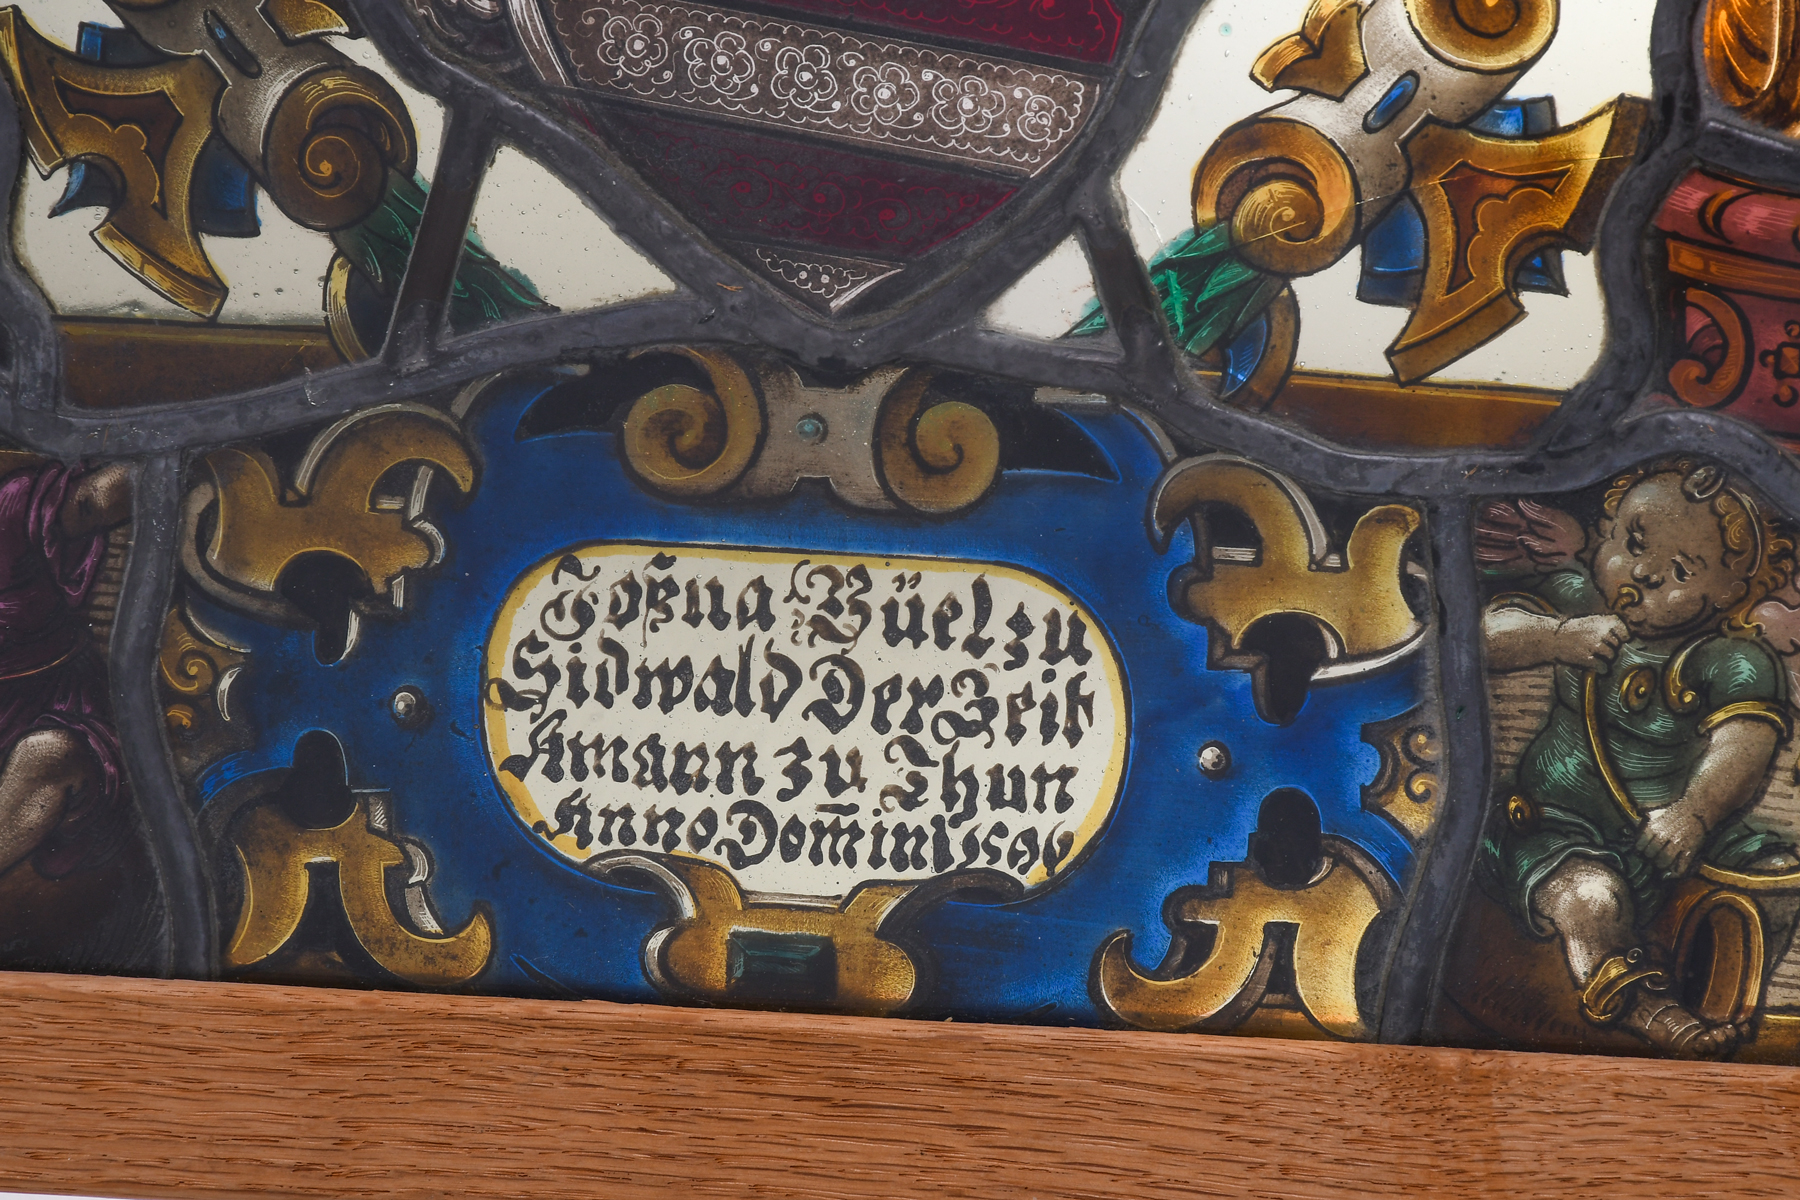 Joßua Büel zu
Sidwald Der Zeit
Amann zu Thun
Anno Dom̄ini 1596